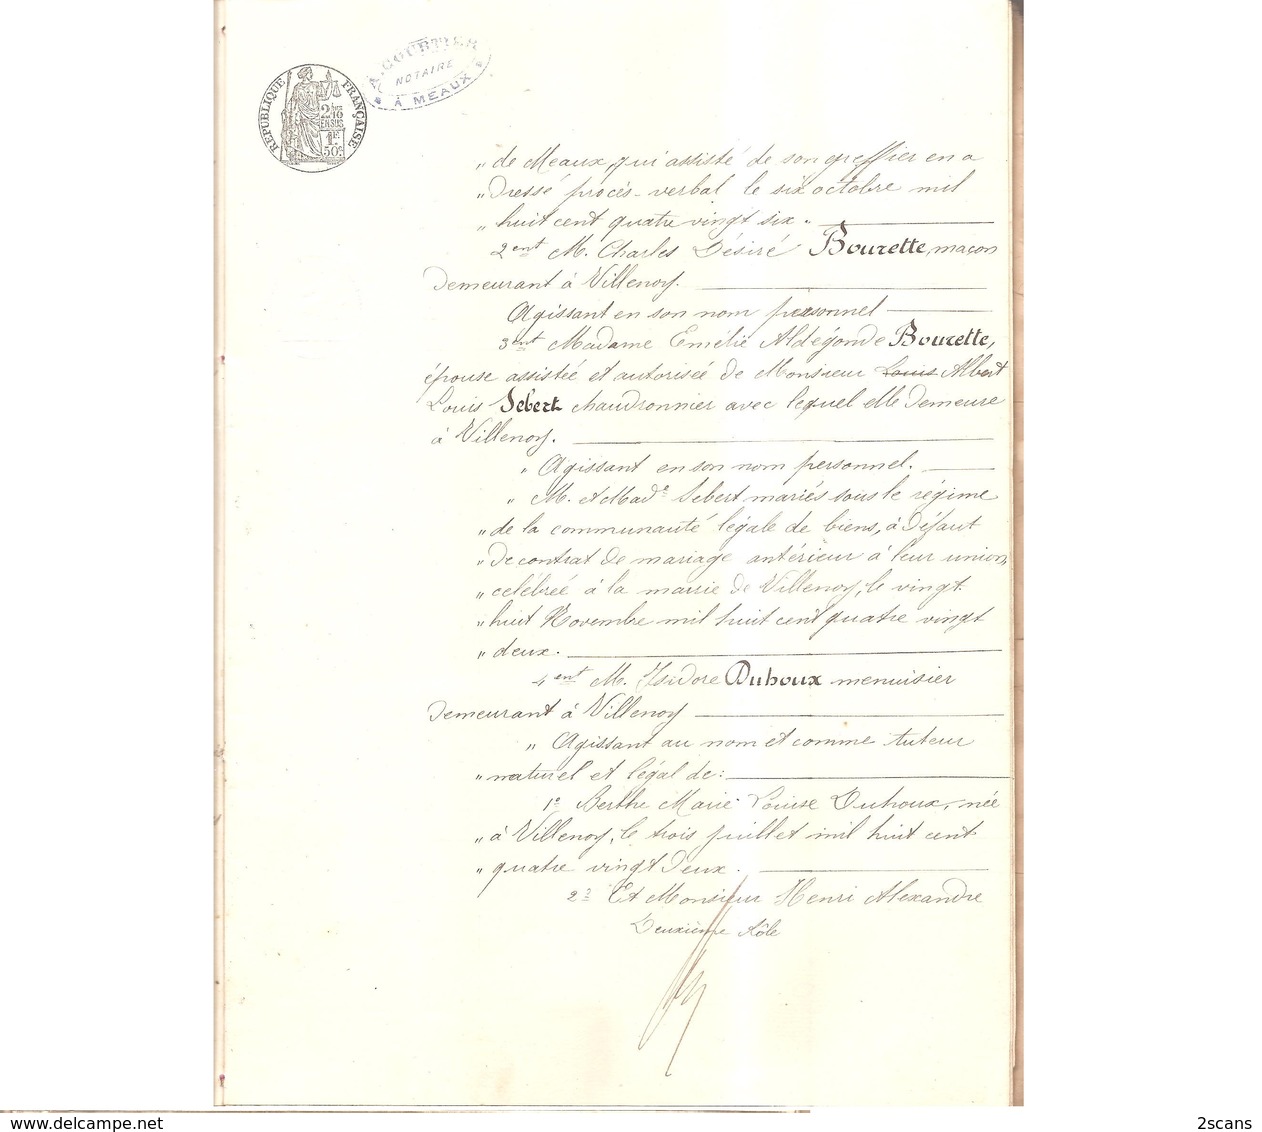 RÉPUBLIQUE FRANÇAISE
2/10
EN SUS
1F
50c
A. COURTIER
NOTAIRE
À MEAUX
„ de Meaux, qui assisté de son greffier en a
„ dressé procès-verbal le six octobre mil
„ huit cent quatre vingt six.
2ent M. Charles Désiré Bourette, maçon
demeurant à Villenoy.
Agissant en son nom personnel
3ent Madame Emélie Aldégonde Bourette,
épouse assistée et autorisée de Monsieur Louis Albert
Louis Sebert chaudronnier avec lequel elle demeure
à Villenoy.
„ Agissant en son nom personnel.
„ M. et Made Sebert mariés sous le régime
„ de la communauté légale de biens, à défaut
„ de contrat de mariage antérieur à leur union,
„ célébrée à la mairie de Villenoy, le vingt
„ huit Novembre mil huit cent quatre vingt
„ deux.
4ent M. Isidore Duhoux menuisier
demeurant à Villenoy
„ Agissant au nom et comme tuteur
„ naturel et légal de:
1º Berthe Marie Louise Duhoux, née
„ à Villenoy, le trois juillet mil huit cent
„ quatre vingt deux.
2º Et Monsieur Henri Alexandre
Deuxième Rôle
www.delcampe.net
2scans